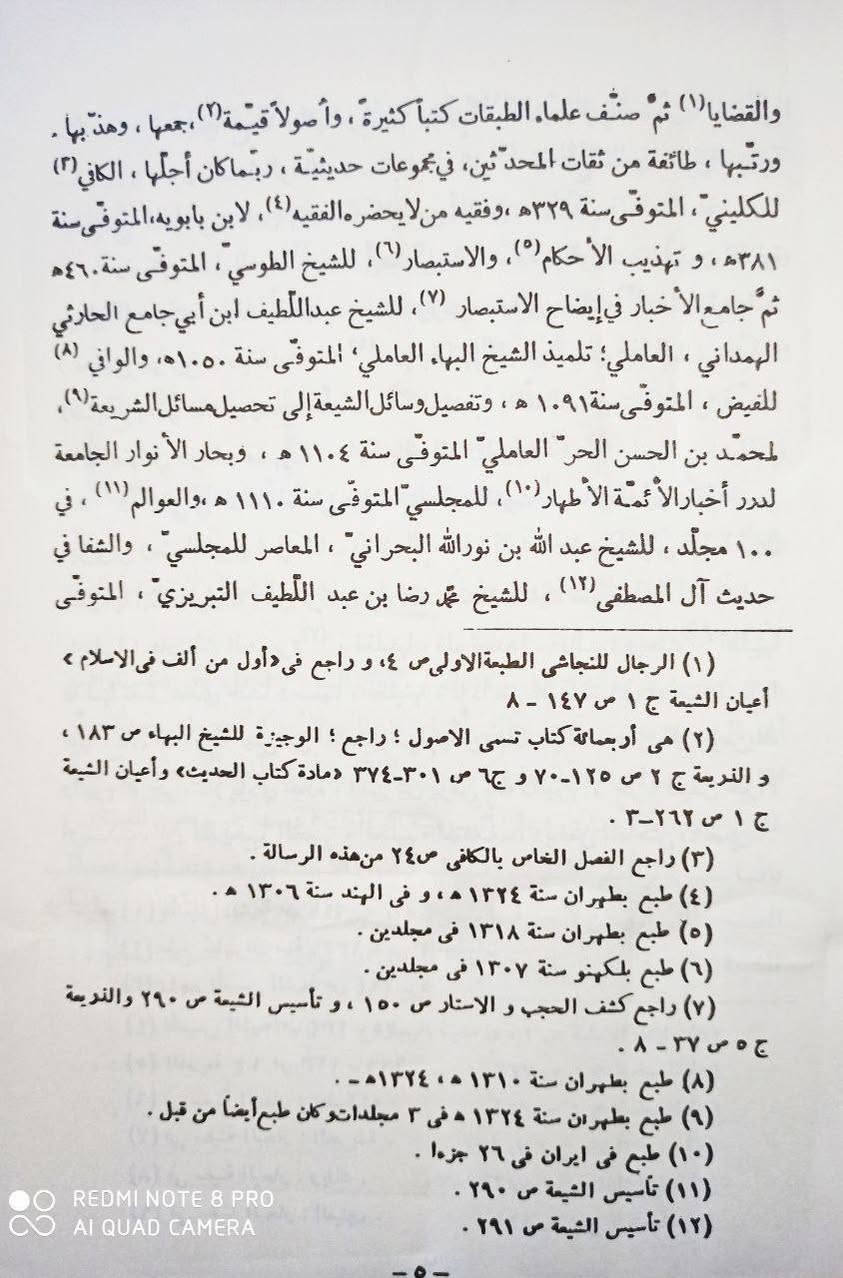 والقضايا(١) ثمَّ صنّف علماء الطبقات كتباً كثيرةً ، وأصولاً قيّمة(٢)،جمعها ، وهذّبها .
ورتّبها ، طائفة من ثقات المحدّثين، في مجموعات حديثيّة ، ربّماكان أجلّها ، الكافي(٣)
للكلينيّ، المتوفّى سنة ٣٢٩ه ،وفقيه من لايحضره الفقيه(٤)، لابن بابويه،المتوفّى سنة
٣٨١ه ، و تهذيب الأحكام(٥)، والاستبصار(٦)، للشيخ الطوسيّ، المتوفّى سنة ٤٦٠ه
ثمَّ جامع الأخبار في إيضاح الاستبصار (٧)، للشيخ عبداللّطيف ابن أبي جامع الحارثي
الهمداني ، العاملي؛ تلميذ الشيخ البهاء العاملي، المتوفّى سنة ١٠٥٠ه، والوافي (٨)
للفيض ، المتوفّى سنة ١٠٩١ ه ، وتفصيل وسائل الشيعة إلى تحصيل مسائل الشريعة(٩)،
لمحمّد بن الحسن الحرّ العامليّ المتوفّى سنة ١١٠٤ ه ، وبحار الأنوار الجامعة
لدرر أخبارالأئمّة الأطهار(١٠)، للمجلسيّ المتوفّى سنة ١١١٠ ه ،والعوالم(١١) ، في
١٠٠ مجلّد ، للشيخ عبد الله بن نورالله البحرانيّ ، المعاصر للمجلسيّ ، والشفا في
حديث آل المصطفى(١٢) ، للشيخ محمّد رضا بن عبد اللّطيف التبريزيّ ، المتوفّى
(١) الرجال للنجاشى الطبعة الاولى ص ٤، و راجع فى «أول من ألف فى الاسلام »
أعيان الشيعة ج ١ ص ١٤٧ – ٨
(٢) هى أربعمائة كتاب تسمى الاصول ؛ راجع ؛ الوجيزة للشيخ البهاء ص ١٨٣ ،
و الذريعة ج ٢ ص ١٢٥–٧٠ و ج٦ ص ٣٠١–٣٧٤ «مادة كتاب الحديث» و أعيان الشيعة
ج ١ ص ٢٦٢–٣ .
(٣) راجع الفصل الخاص بالكافى ص٢٤ من هذه الرسالة .
(٤) طبع بطهران سنة ١٣٢٤ ه ، و فى الهند سنة ١٣٠٦ ه .
(٥) طبع بطهران سنة ١٣١٨ فى مجلدين .
(٦) طبع بلكهنو سنة ١٣٠٧ فى مجلدين .
(٧) راجع كشف الحجب و الاستار ص ١٥٠ ، و تأسيس الشيعة ص ٢٩٠ والذريعة
ج ٥ ص ٣٧ – ٨ .
(٨) طبع بطهران سنة ١٣١٠ ه ، ١٣٢٤ه – .
(٩) طبع بطهران سنة ١٣٢٤ ه فى ٣ مجلدات وكان طبع أيضاً من قبل .
(١٠) طبع فى ايران فى ٢٦ جزءا .
(١١) تأسيس الشيعة ص ٢٩٠ .
(١٢) تأسيس الشيعة ص ٢٩١ .
– ٥ –
REDMI NOTE 8 PRO
AI QUAD CAMERA